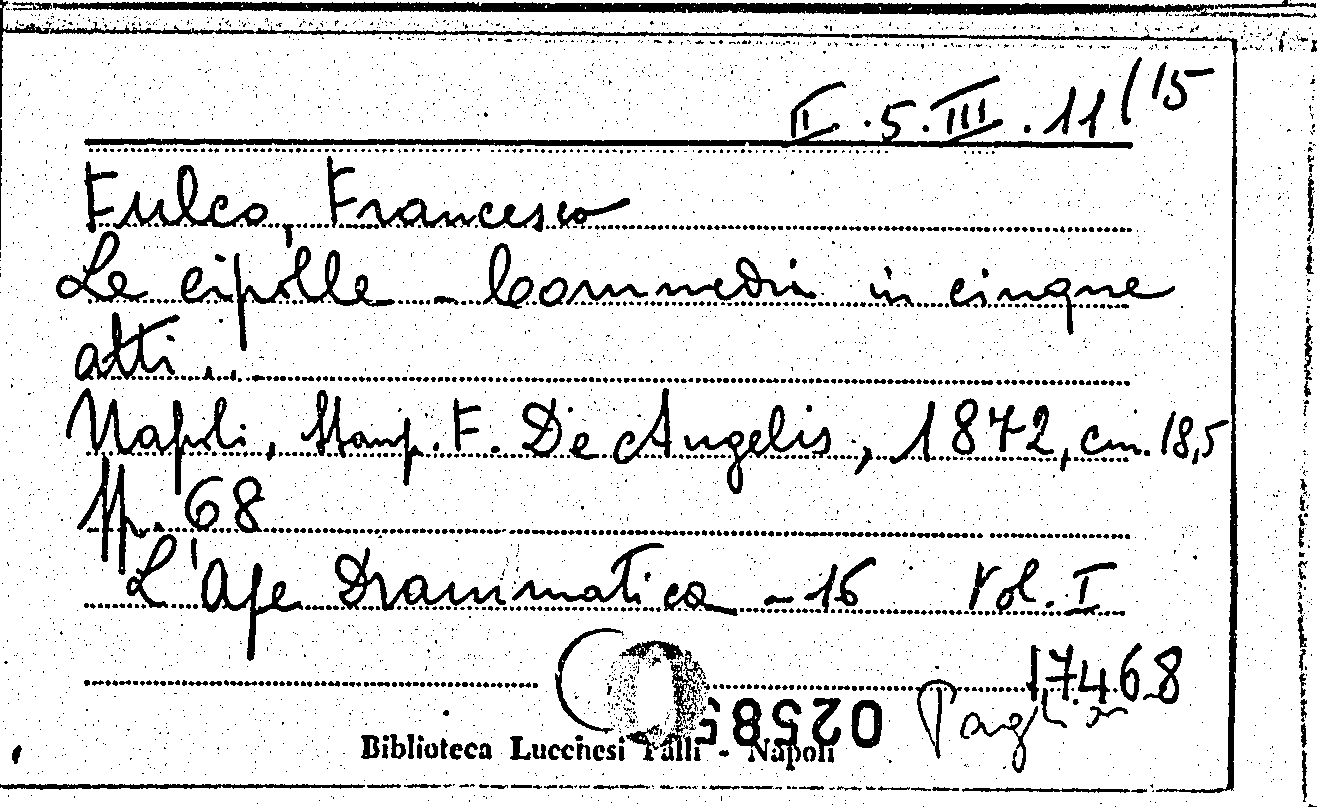 II.5.III.11(15
Fulco, Francesco
Le cipolle - Commedia in cinque
atti...
Napoli, Stamp. F. De Angelis, 1872, cm. 18,5
pp. 68
L'Ape Drammatica - 16 Vol. I
17.468
02585
Biblioteca Lucchesi Palli - Napoli